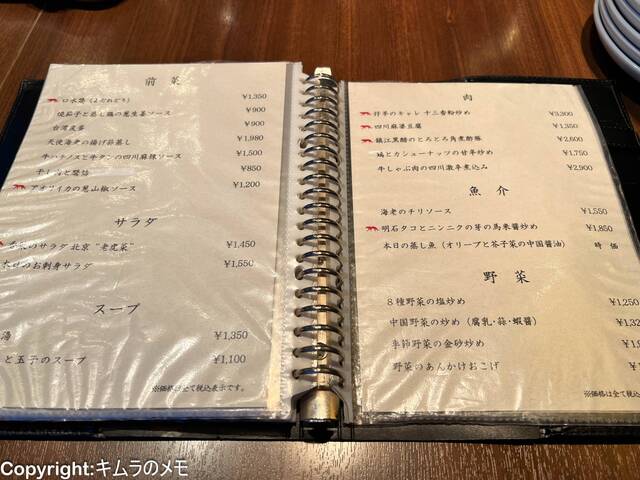 前菜
口水鶏 (よだれどり) ¥1,350
焼茄子と蒸し鶏の葱生姜ソース ¥900
台湾皮蛋 ¥900
天使海老の揚げ蒜蒸し ¥1,980
牛ハチノスと牛タンの四川麻辣ソース ¥1,500
干し肉と腸詰 ¥850
アオリイカの葱山椒ソース ¥1,200
サラダ
のサラダ 北京 "老虎菜" ¥1,450
本日のお刺身サラダ ¥1,550
スープ
湯 ¥1,350
と玉子のスープ ¥1,100
※価格は全て税込表示です。
肉
仔羊のキャレ 十三香粉炒め ¥3,300
四川麻婆豆腐 ¥1,350
鎮江黒酢のとろとろ角煮酢豚 ¥2,600
鶏とカシューナッツの甘辛炒め ¥1,750
牛しゃぶ肉の四川激辛煮込み ¥2,900
魚介
海老のチリソース ¥1,550
明石タコとニンニクの芽の馬来醬炒め ¥1,850
本日の蒸し魚 (オリーブと芥子菜の中国醬油) 時価
野菜
8種野菜の塩炒め ¥1,250
中国野菜の炒め (腐乳・蒜・蝦醬)
季節野菜の金砂炒め
野菜のあんかけおこげ
※価格は全て税込
Copyright:キムラのメモ